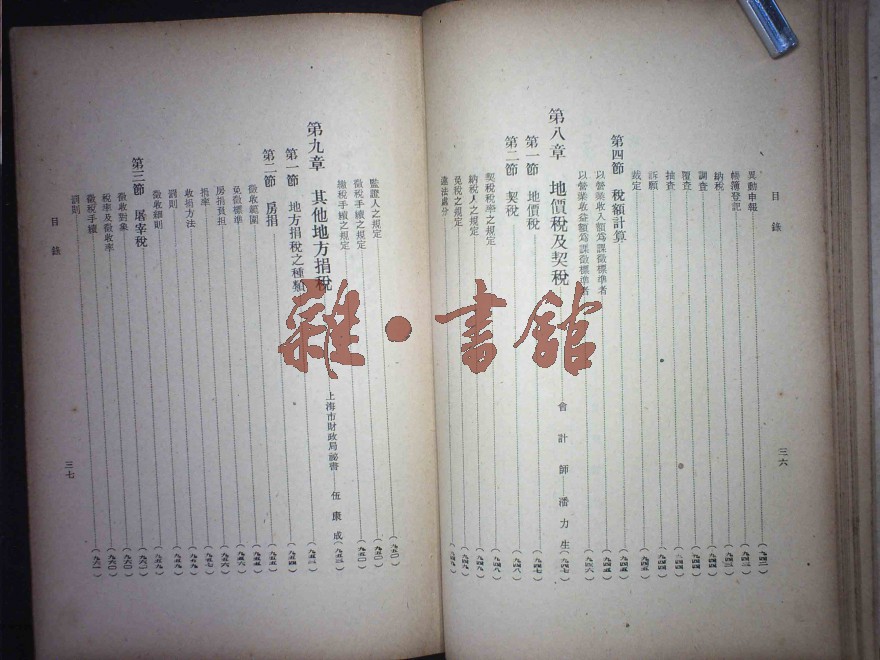 目錄
異動申報 (九四二)
帳簿登記 (九四三)
納稅 (九四四)
調查 (九四四)
覆查 (九四四)
抽查 (九四四)
訴願 (九四四)
裁定 (九四五)
第四節 稅額計算 (九四五)
以營業收入額為課徵標準者 (九四五)
以營業收益額為課徵標準者 (九四六)
第八章 地價稅及契稅 會計師 潘力生 (九四七)
第一節 地價稅 (九四七)
第二節 契稅 (九四八)
契稅稅率之規定 (九四八)
納稅人之規定 (九四九)
免稅之規定 (九四九)
違法處分 (九四九)
三六
監證人之規定 (九五〇)
徵稅手續之規定 (九五〇)
繳稅手續之規定 (九五〇)
第九章 其他地方捐稅 上海市財政局祕書 伍康成 (九五三)
第一節 地方捐稅之種類 (九五四)
第二節 房捐 (九五五)
徵收範圍 (九五五)
免徵標準 (九五六)
房捐負担 (九五六)
捐率 (九五七)
收捐方法 (九五九)
罰則 (九五九)
徵收細則
第三節 屠宰稅
徵收對象 (九六〇)
稅率及徵收率 (九六〇)
徵稅手續 (九六一)
罰則
目錄
三七
雜·書館